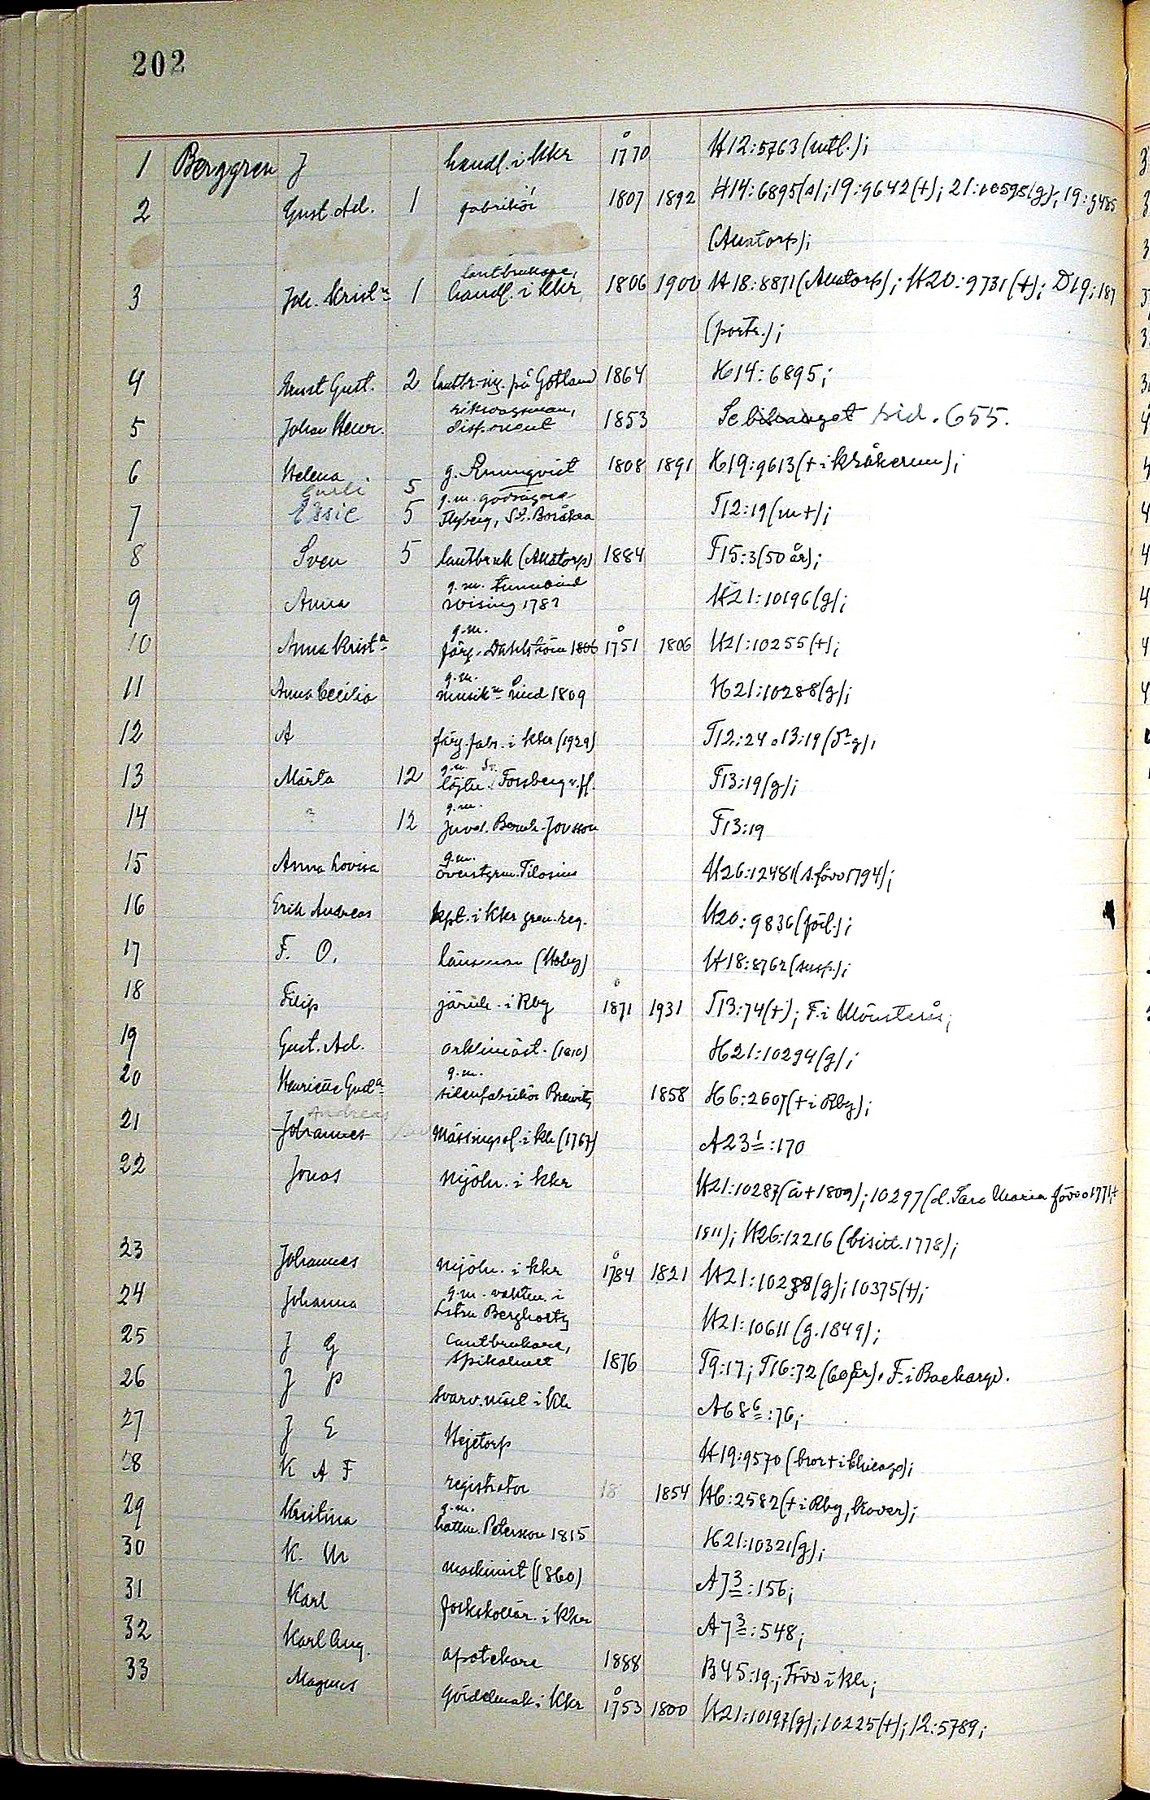 202
1 Berggren J handl. i Kkr 1770 H12:5763 (utl.);
2 Gust. Ad. 1 fabrikör 1807 1892 H14:6895(s); 19:9642(+); 21:10595(g); 19:9485
(Austorp);
3 Joh. Kristn 1 lantbrukare,
handl. i Kkr 1806 1900 H18:8871 (Austorp); H20:9731 (+); D19:187
(portr.);
4 Ernst Gust. 2 lantbr. ing. på Gotland 1864 H14:6895;
5 Johan Henr. riksdagsman,
disponent 1853 Se bihanget sid. 655.
6 Helena g. Runnqvist 1808 1891 H19:9613 (+ i Kråkerum);
7 Gurli 5
Elsie 5 g.m. godsägare
Flyberg, St. T12:19 (m+);
8 Sven 5 lantbruk (Austorp) 1884 T15:3 (50 år);
9 Anna g.m. tunnbind
Wising 1782 H21:10196(g);
10 Anna Krista g.m.
färg. Dahlström 1806 1751 1806 H21:10255(+);
11 Anna Cecilia g.m.
musikn Lind 1809 H21:10288(g);
12 A färg.fabr. i Kkr (1929) T12:24 o 13:19
13 Märta 12 g.m.
löjtn. Forsberg T13:19(g);
14 12 g.m.
Bernh. Jonsson T13:19
15 Anna Lovisa g.m.
överstyrm. Filosius H26:12481 (s. född 1794);
16 Erik Andreas kpt. i Kkr gren. reg. H20:9836 (förl.);
17 F. O. länsman (Hoby) H18:8762 (susp.);
18 Filip järnh. i Rby 1871 1931 T13:74(+); F. i Mönsterås;
19 Gust. Ad. arklimäst. (1810) H21:10294(g);
20 Henriette Guda g.m.
sidenfabrikör Brewitz 1858 H6:2607 (+ i Rby);
21 Andreas
Johannes Mässingssl. i Kr (1767) A23 1:170
22 Jonas mjöln. i Kkr H21:10287 (ä + 1809); 10297 (d. Sara Maria född 1771, +
1811); H26:12216 (bisitt. 1778);
23 Johannes mjöln. i Kkr 1784 1821 H21:10288(g); 10375(+);
24 Johanna g.m. vaktm. i
Berghortz H21:10611 (g. 1849);
25 J G Lantbrukare,
Spikahult 1876 T9:17; T16:72 (60 år). F. i Backaryd.
26 J P svarv. mäst i Kr A68 6:76;
27 J E Hejetorp H19:9570 (bror + i Chicago);
28 K A F registrator 18 1854 H6:2582 (+ i Rby, Hover);
29 Kristina g.m.
hattm. Peterson 1815 H21:10321(g);
30 K. W maskinist (1860) A7 3:156;
31 Karl folkskollär. i Kkr A7 3:548;
32 Karl Aug. apotekare 1888 B45:19; Född i Kr;
33 Magnus gördelmak i Kkr 1753 1800 H21:10197(g); 10225(+); 12:5789;